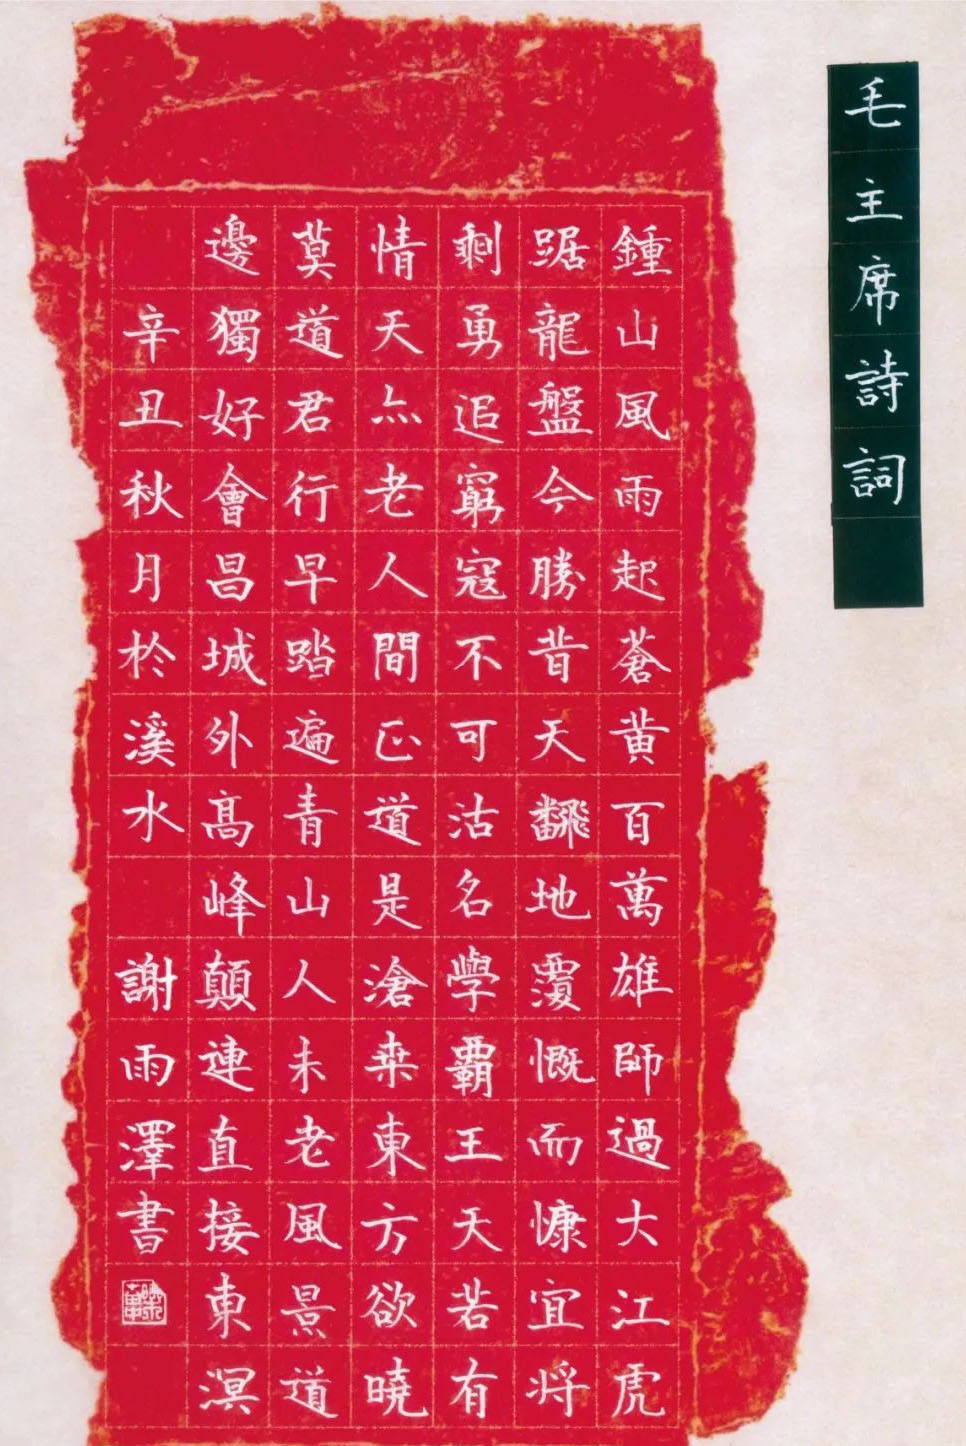 毛主席詩詞
鍾山風雨起蒼黄百萬雄師過大江虎
踞龍盤今勝昔天飜地覆慨而慷宜将
剩勇追窮寇不可沽名學霸王天若有
情天亦老人間正道是滄桒東方欲曉
莫道君行早踏遍青山人未老風景道
邊獨好會昌城外髙峰顛連直接東溟
辛丑秋月於溪水 謝雨澤書